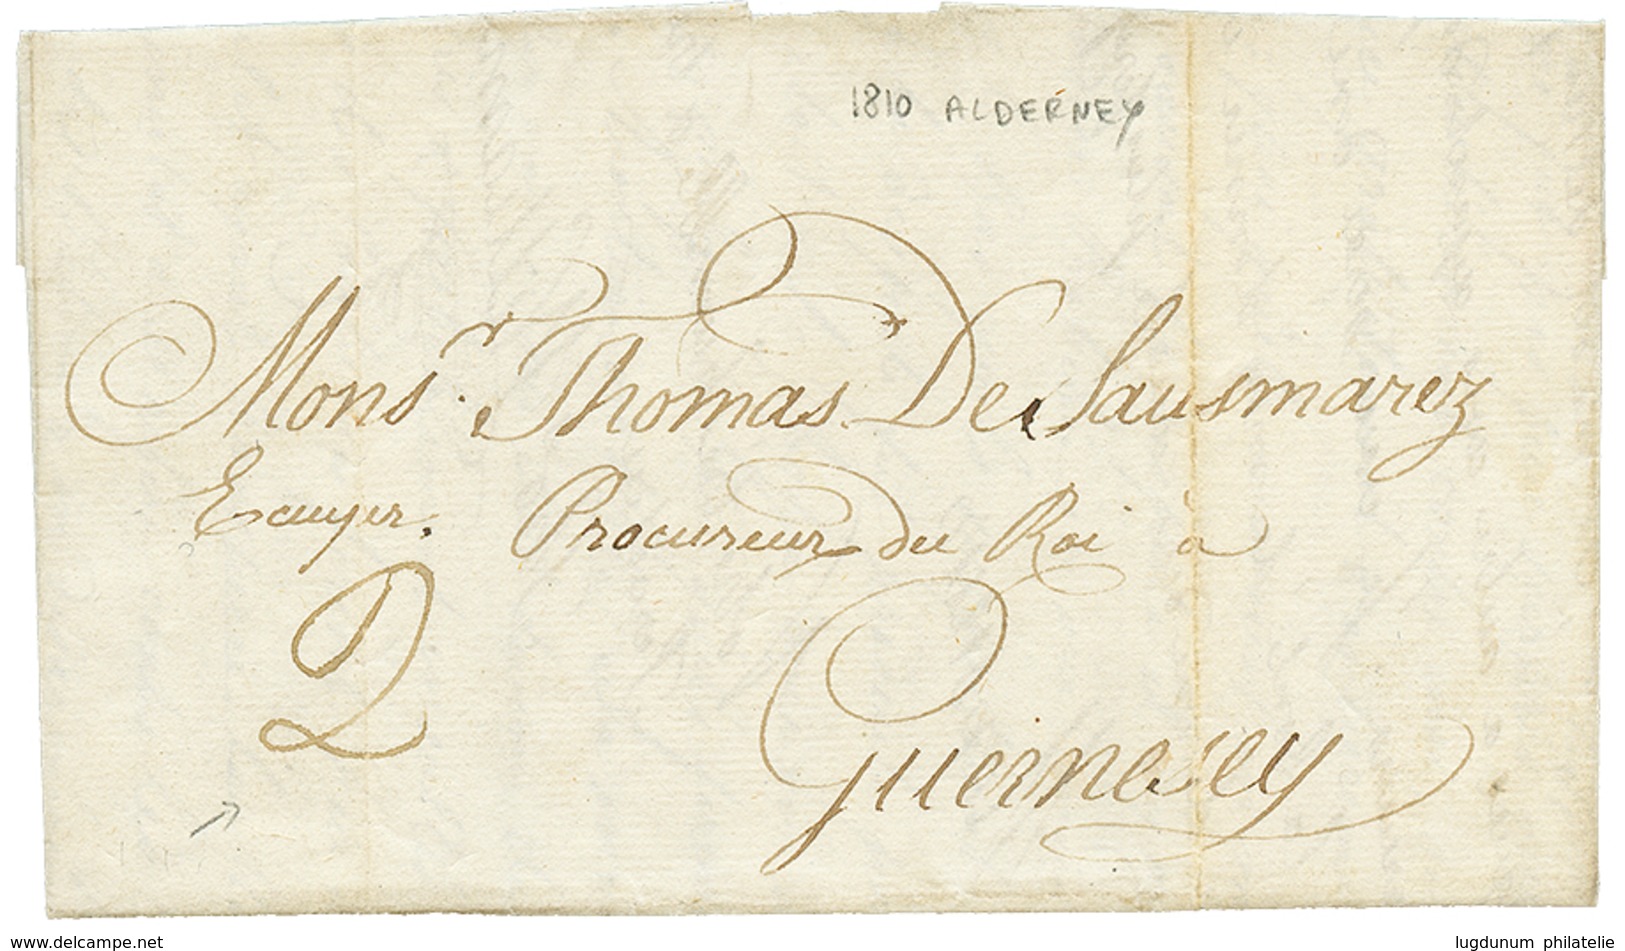 1810 ALDERNEY
Monsr. Thomas De Sausmarez
Ecuyer. Procureur du Roi à
2
Guernesey
www.delcampe.net
lugdunum philatelie